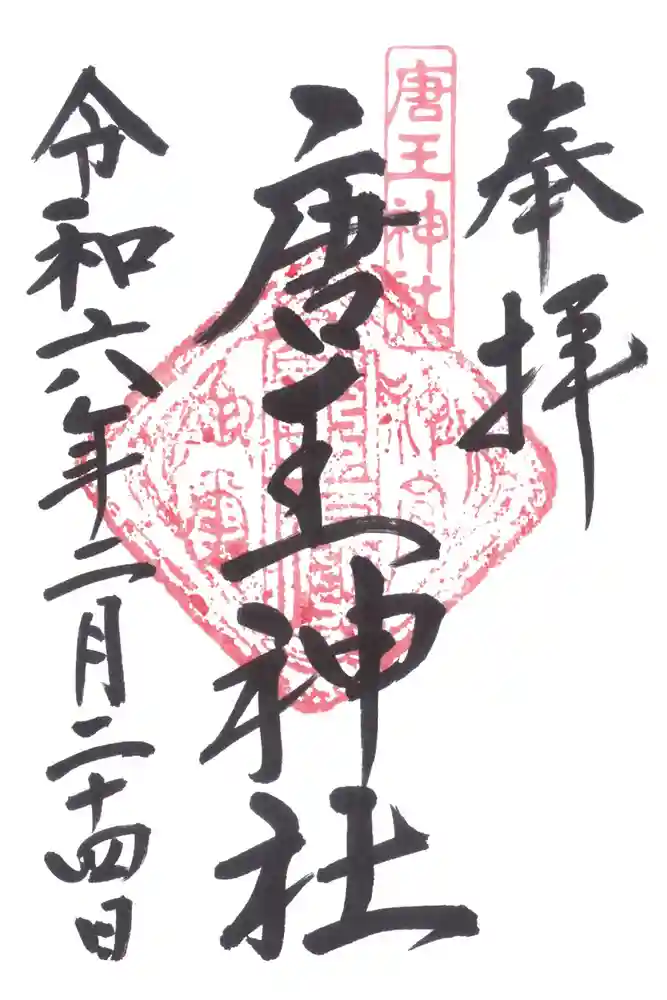 奉拝
唐王神社
唐王神社
令和六年二月二十四日